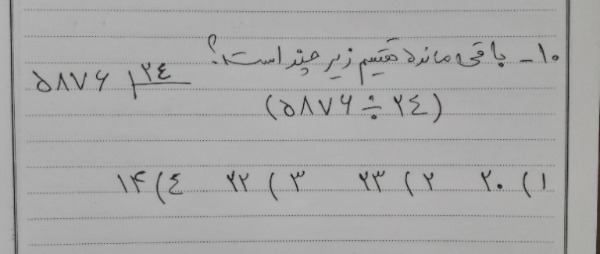 ۱۰- باقی مانده تقسیم زیر چند است؟
۵۸۷۶ ۲۴
(۵۸۷۶ ÷ ۲۴)
۱) ۲۰ ۲) ۲۳ ۳) ۲۲ ۴) ۱۴